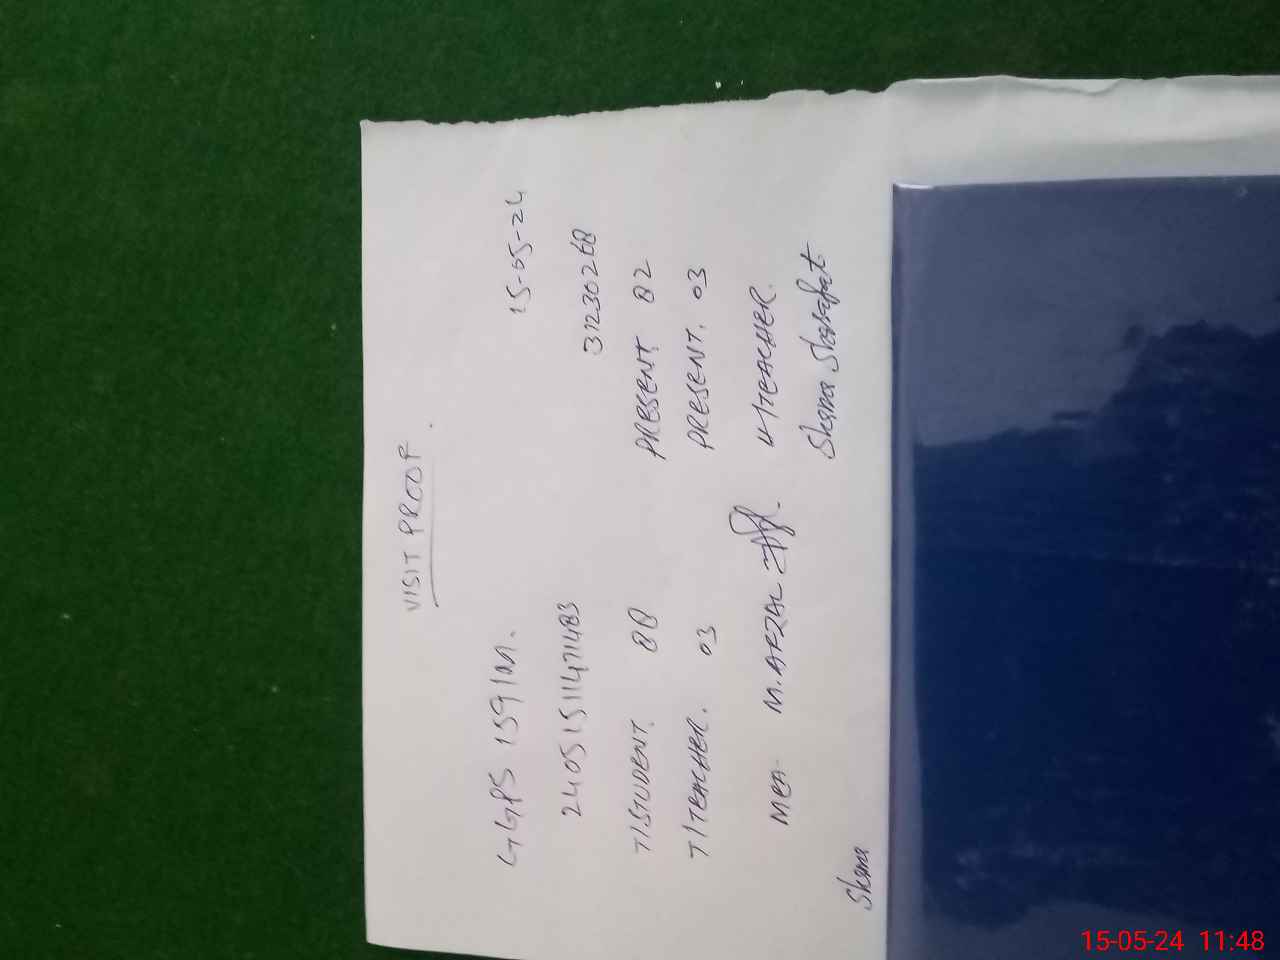 VISIT PROOF
GGPS 159/M. 15-05-24
240515114711483 31230268
T/STUDENT. 88 PRESENT 82
T/TEACHER. 03 PRESENT. 03
MEA- M. AFZAL H/TEACHER.
Shama Sharafat
Shama
15-05-24 11:48